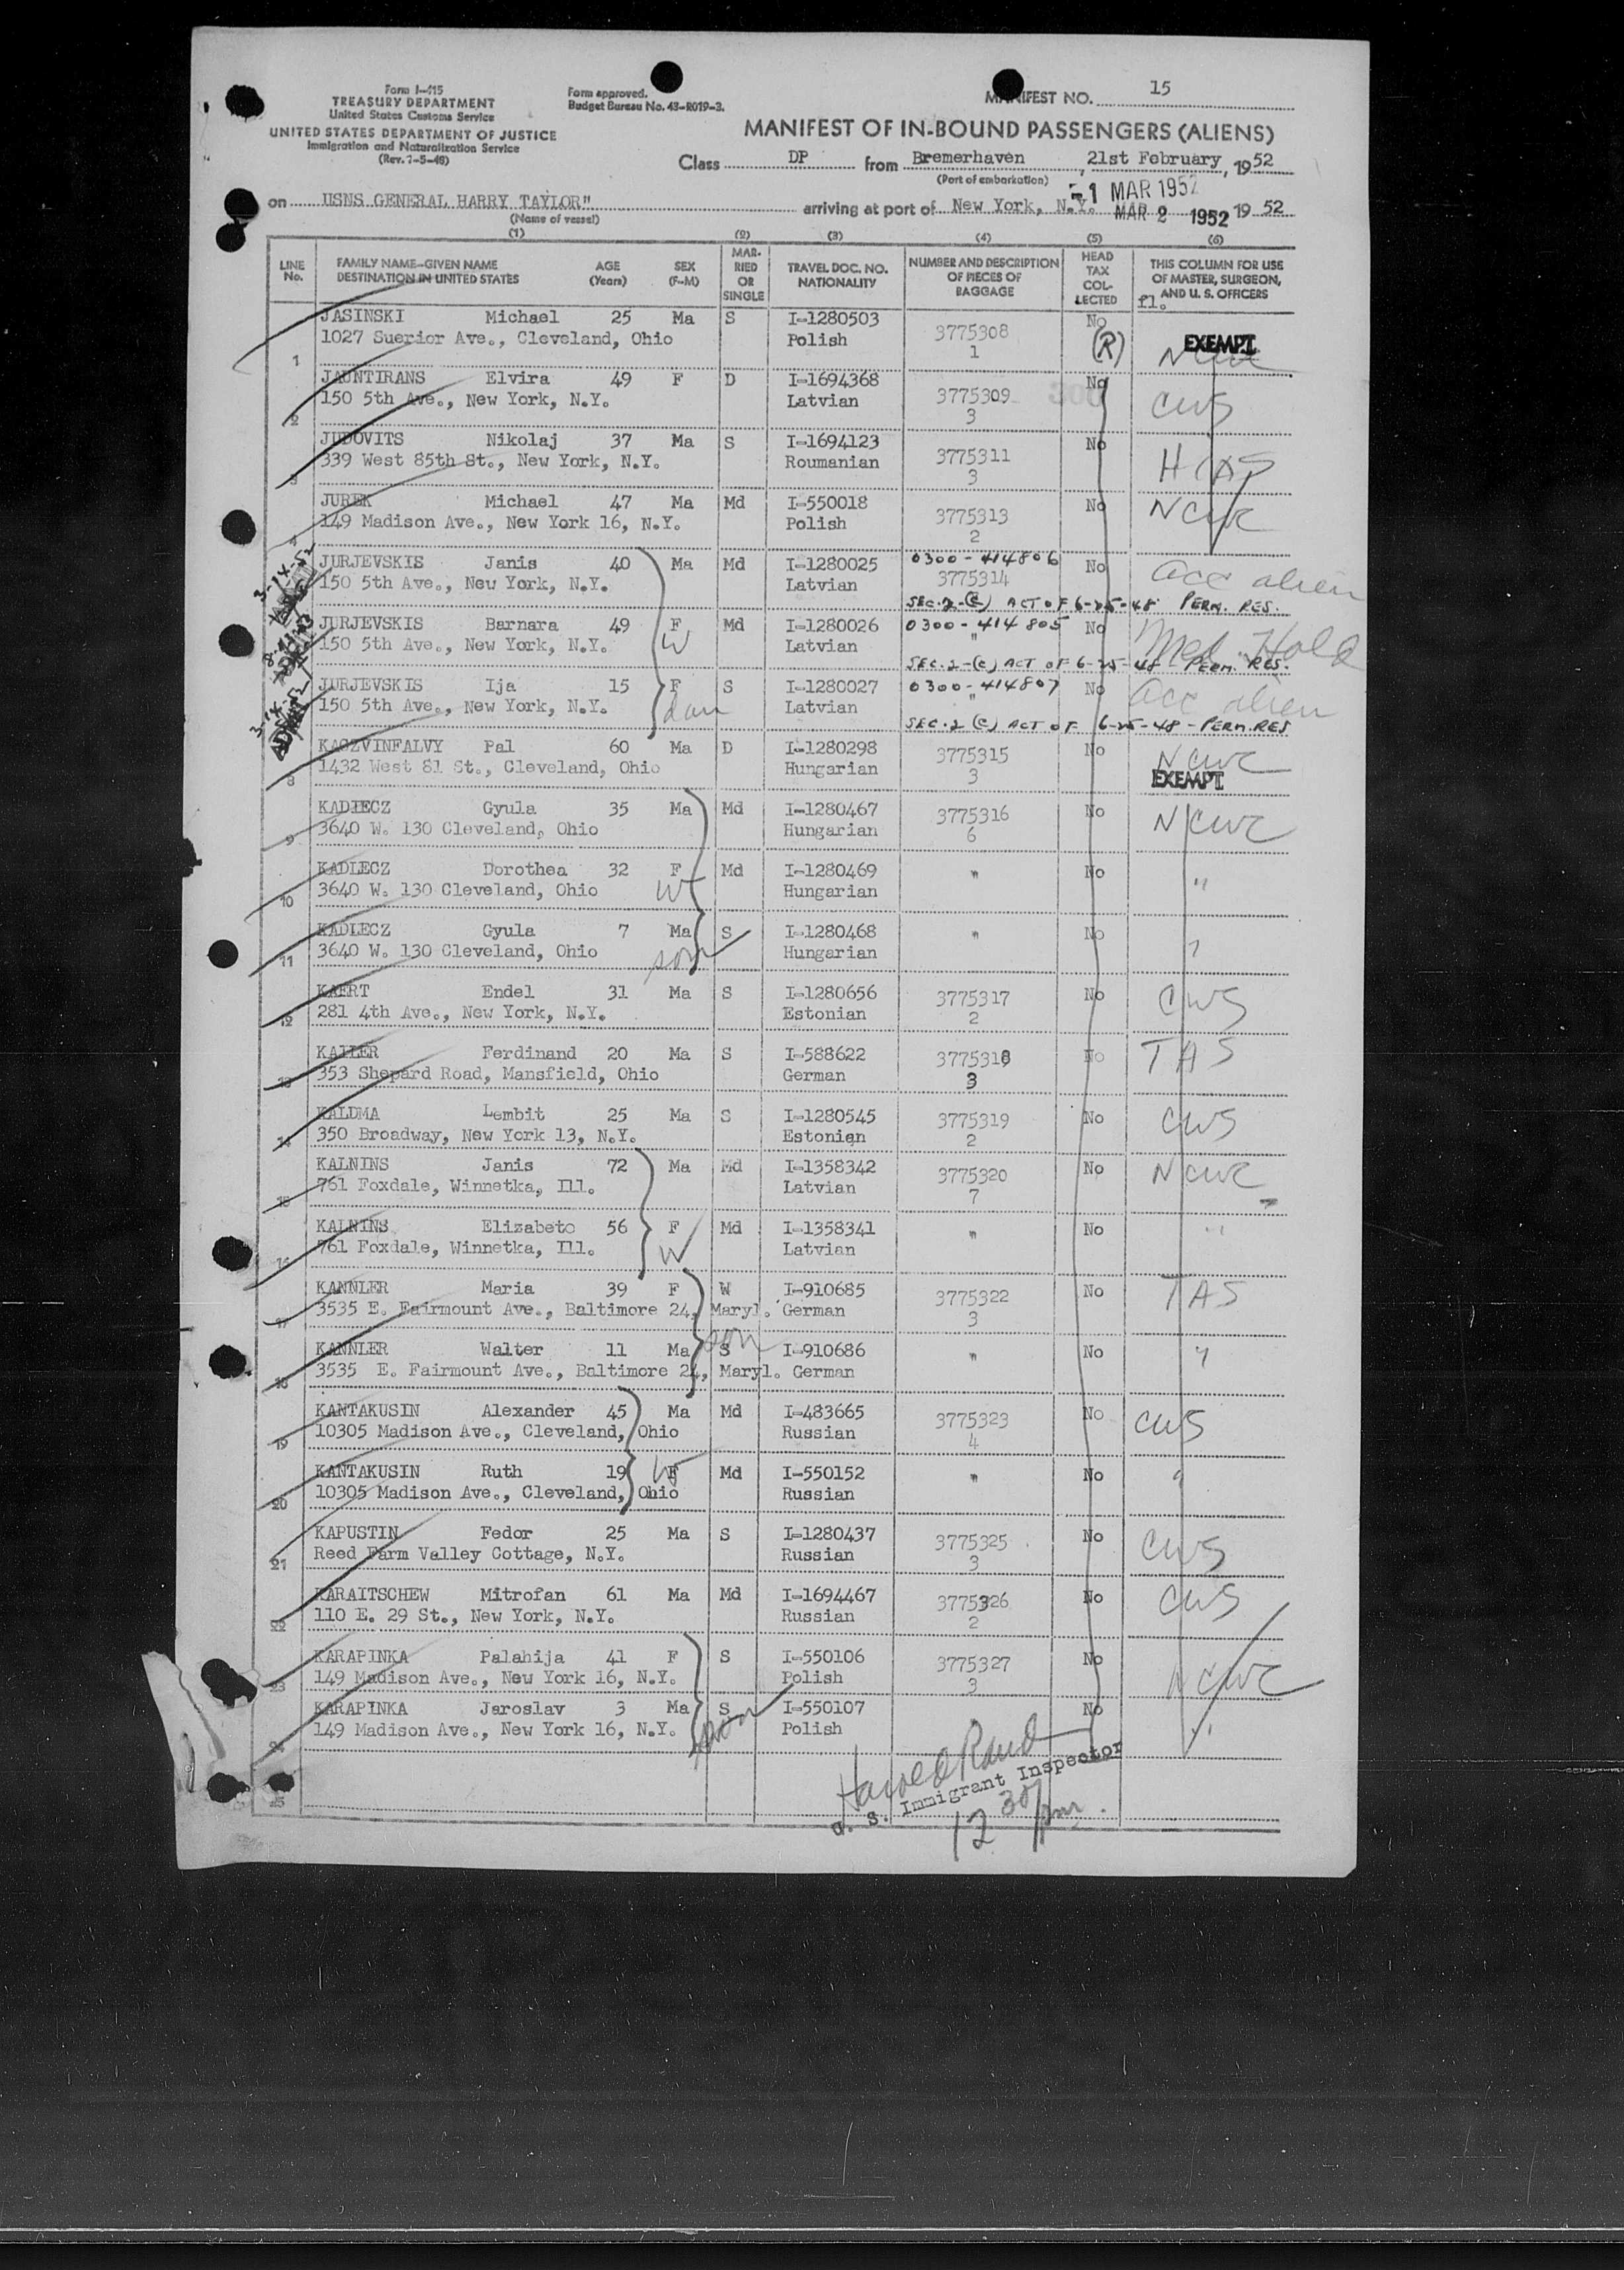 Form I-415
TREASURY DEPARTMENT
United States Customs Service
UNITED STATES DEPARTMENT OF JUSTICE
Immigration and Naturalization Service
(Rev. 7-5-48)
Form approved.
Budget Bureau No. 43-R019-3.
MANIFEST NO. 15
MANIFEST OF IN-BOUND PASSENGERS (ALIENS)
Class DP from Bremerhaven, 21st February, 1952
(Port of embarkation)
-1 MAR 1952
on USNS GENERAL HARRY TAYLOR" arriving at port of New York, N.Y. MAR 2 1952 19 52
(Name of vessel)
(1) (2) (3) (4) (5) (6)
LINE No. FAMILY NAME-GIVEN NAME DESTINATION IN UNITED STATES AGE (Years) SEX (F-M) MARRIED OR SINGLE TRAVEL DOC. NO. NATIONALITY NUMBER AND DESCRIPTION OF PIECES OF BAGGAGE HEAD TAX COLLECTED THIS COLUMN FOR USE OF MASTER, SURGEON, AND U. S. OFFICERS
fl.
JASINSKI Michael 25 Ma S I-1280503 3775308 No EXEMPT
1 1027 Suerior Ave., Cleveland, Ohio Polish 1 (R) NCWC
JAUNTIRANS Elvira 49 F D I-1694368 3775309 No CWS
2 150 5th Ave., New York, N.Y. Latvian 3
JUDOVITS Nikolaj 37 Ma S I-1694123 3775311 No HIAS
3 339 West 85th St., New York, N.Y. Roumanian 3
JUREK Michael 47 Ma Md I-550018 3775313 No NCWC
4 149 Madison Ave., New York 16, N.Y. Polish 2
3-14-52 JURJEVSKIS Janis 40 Ma Md I-1280025 0300-414806 No acc alien
150 5th Ave., New York, N.Y. Latvian 3775314
SEC. 2-(c) ACT OF 6-25-48 PERM. RES.
JURJEVSKIS Barnara 49 F Md I-1280026 0300-414805 No Med. Hold
150 5th Ave., New York, N.Y. W Latvian "
SEC. 2-(c) ACT OF 6-25-48 PERM. RES.
3-14-52 JURJEVSKIS Ija 15 F S I-1280027 0300-414807 No acc alien
150 5th Ave., New York, N.Y. dau Latvian "
SEC. 2 (c) ACT OF 6-25-48 - PERM. RES
KASZVINFALVY Pal 60 Ma D I-1280298 3775315 No NCWC
8 1432 West 81 St., Cleveland, Ohio Hungarian 3 EXEMPT
KADIECZ Gyula 35 Ma Md I-1280467 3775316 No NCWC
9 3640 W. 130 Cleveland, Ohio Hungarian 6
KADLECZ Dorothea 32 F Md I-1280469 " No "
10 3640 W. 130 Cleveland, Ohio W Hungarian
KADLECZ Gyula 7 Ma S I-1280468 " No "
11 3640 W. 130 Cleveland, Ohio son Hungarian
KAERT Endel 31 Ma S I-1280656 3775317 No CWS
12 281 4th Ave., New York, N.Y. Estonian 2
KAILER Ferdinand 20 Ma S I-588622 3775318 No TAS
13 353 Shepard Road, Mansfield, Ohio German 3
KALDMA Lembit 25 Ma S I-1280545 3775319 No CWS
14 350 Broadway, New York 13, N.Y. Estonian 2
KALNINS Janis 72 Ma Md I-1358342 3775320 No NCWC
15 761 Foxdale, Winnetka, Ill. Latvian 7
KALNINS Elizabete 56 F Md I-1358341 " No "
16 761 Foxdale, Winnetka, Ill. W Latvian
KANNLER Maria 39 F W I-910685 3775322 No TAS
17 3535 E. Fairmount Ave., Baltimore 24, Maryl. German 3
KANNLER Walter 11 Ma son S I-910686 " No "
18 3535 E. Fairmount Ave., Baltimore 24, Maryl. German
KANTAKUSIN Alexander 45 Ma Md I-483665 3775323 No CWS
19 10305 Madison Ave., Cleveland, Ohio Russian 4
KANTAKUSIN Ruth 19 F W Md I-550152 " No "
20 10305 Madison Ave., Cleveland, Ohio Russian
KAPUSTIN Fedor 25 Ma S I-1280437 3775325 No CWS
21 Reed Farm Valley Cottage, N.Y. Russian 3
KARAITSCHEW Mitrofan 61 Ma Md I-1694467 3775326 No CWS
22 110 E. 29 St., New York, N.Y. Russian 2
KARAPINKA Palahija 41 F S I-550106 3775327 No NCWC
23 149 Madison Ave., New York 16, N.Y. Polish 3
KARAPINKA Jaroslav 3 Ma S I-550107 " No "
24 149 Madison Ave., New York 16, N.Y. son Polish
25
Harold Rand
U. S. Immigrant Inspector
12 30 pm.